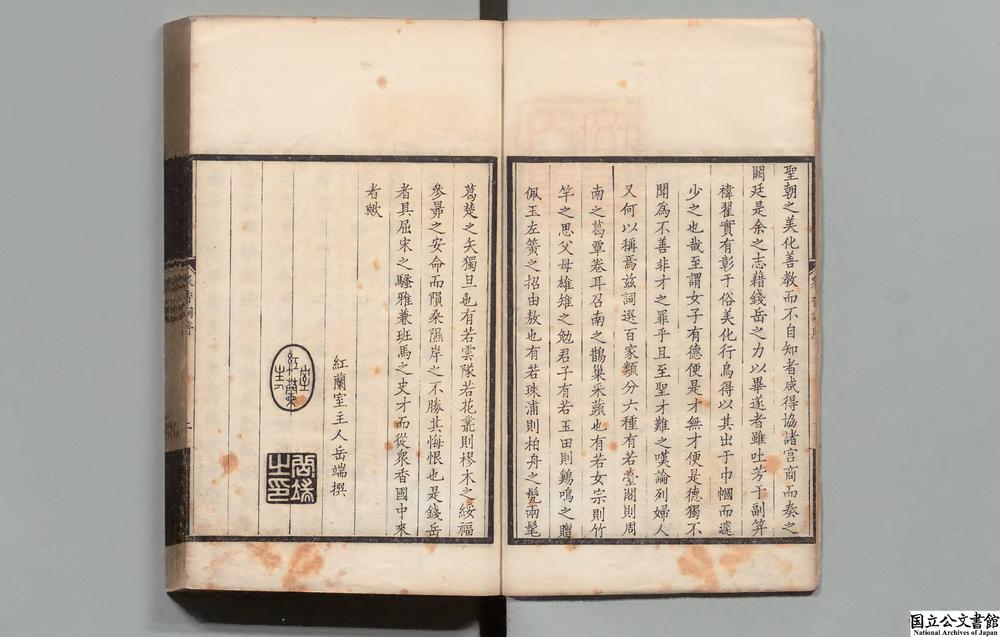 聖朝之美化善教而不自知者咸得協諸宫商而奏之
闕廷是余之志藉錢岳之力以畢遂者雖吐芳于副笄
褘翟實有彰于俗美化行烏得以其出于巾幗而遽
少之也哉至謂女子有德便是才無才便是德獨不
聞為不善非才之罪乎且至聖才難之嘆論列婦人
又何以稱焉兹詞選百家類分六種有若臺閣則周
南之葛覃卷耳召南之鵲巢采蘋也有若女宗則竹
竿之思父母雄雉之勉君子有若玉田則鷄鳴之贈
佩玉左簧之招由敖也有若珠浦則柏舟之髧兩髦
葛楚之矢獨旦也有若雲隊若花叢則樛木之綏福
參昴之安命而隕桑隰岸之不勝其悔恨也是錢岳
者具屈宋之騷雅兼班馬之史才而從眾香國中來
者歟
紅蘭室主人岳端撰
紅蘭室主
岳端之印
衆香詞序
國立公文書館
National Archives of Japan